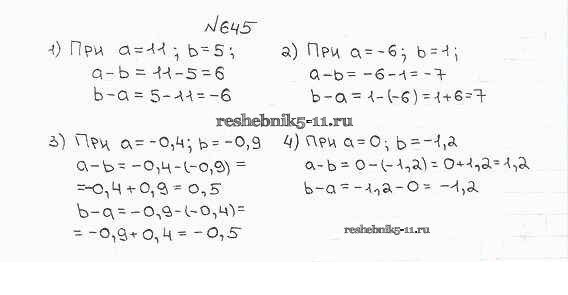 №645
1) При a=11; b=5;
a-b=11-5=6
b-a=5-11=-6
2) При a=-6; b=1;
a-b=-6-1=-7
b-a=1-(-6)=1+6=7
reshebnik5-11.ru
3) При a=-0,4; b=-0,9
a-b=-0,4-(-0,9)=
=-0,4+0,9=0,5
b-a=-0,9-(-0,4)=
=-0,9+0,4=-0,5
4) При a=0; b=-1,2
a-b=0-(-1,2)=0+1,2=1,2
b-a=-1,2-0=-1,2
reshebnik5-11.ru